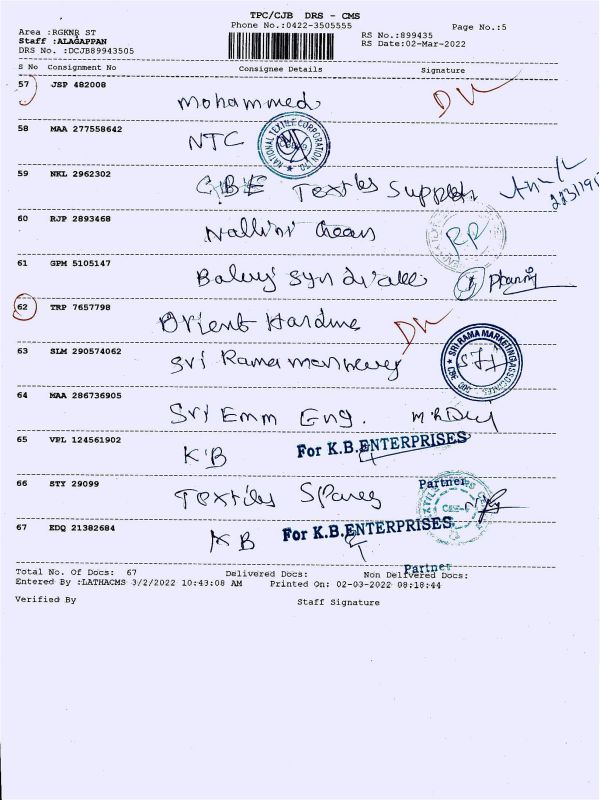 TPC/CJB DRS - CMS
Phone No.:0422-3505555
Page No.:5
Area :RGKNR ST
Staff :ALAGAPPAN
DRS No. :DCJB89943505
RS No.:899435
RS Date:02-Mar-2022
S No Consignment No Consignee Details Signature
57 JSP 482008
Mohammed
58 MAA 277558642
NTC NATIONAL TEXTILE CORPORATION
59 NKL 2962302
CBE Textiles Suppliers
60 RJP 2893468
Nallini
61 GPM 5105147
62 TRP 7657798
Orient
63 SLM 290574062
Sri Rama SRI RAMA MARKETING ASSOCIATES
64 MAA 286736905
Sri Emm Eng.
65 VPL 124561902
KB For K.B.ENTERPRISES
Partner
66 STY 29099
Textiles Spares
67 EDQ 21382684
KB For K.B.ENTERPRISES
Partner
Total No. Of Docs: 67 Delivered Docs: Non Delivered Docs:
Entered By :LATHACMS 3/2/2022 10:43:08 AM Printed On: 02-03-2022 08:18:44
Verified By Staff Signature